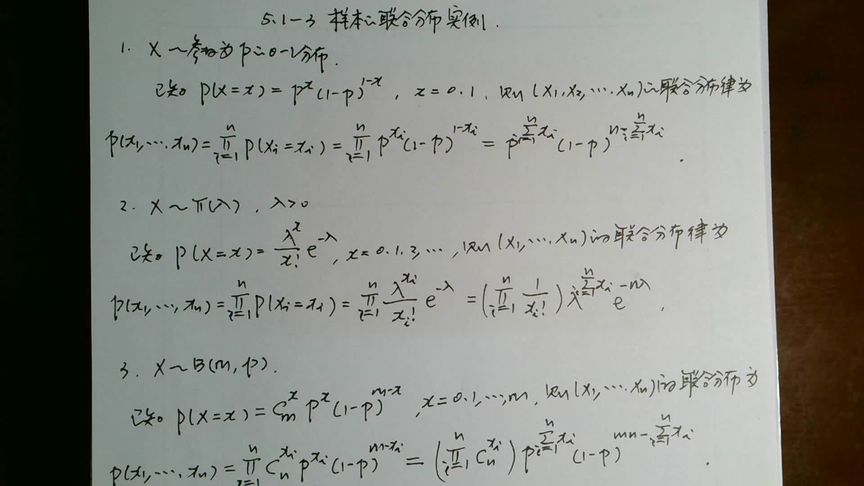 5.1-3 样本的联合分布实例.
1. X~参数为p的0-1分布.
已知 P(X=x) = p^x (1-p)^{1-x}, x=0.1. 则 (X_1,X_2,…,X_n)的联合分布律为
p(x_1,…,x_n) = ∏_{i=1}^n P(X_i=x_i) = ∏_{i=1}^n p^{x_i} (1-p)^{1-x_i} = p^{∑_{i=1}^n x_i} (1-p)^{n-∑_{i=1}^n x_i}.
2. X~π(λ), λ>0
已知 P(X=x) = \frac{λ^x}{x!} e^{-λ}, x=0.1.3,…, 则 (X_1,…,X_n)的联合分布律为
p(x_1,…,x_n) = ∏_{i=1}^n P(X_i=x_i) = ∏_{i=1}^n \frac{λ^{x_i}}{x_i!} e^{-λ} = (∏_{i=1}^n \frac{1}{x_i!}) λ^{∑_{i=1}^n x_i} e^{-nλ}.
3. X~B(m,p).
已知 P(X=x) = C_m^x p^x (1-p)^{m-x}, x=0.1,…,m, 则 (X_1,…,X_n)的联合分布为
p(x_1,…,x_n) = ∏_{i=1}^n C_n^{x_i} p^{x_i} (1-p)^{m-x_i} = (∏_{i=1}^n C_n^{x_i}) p^{∑_{i=1}^n x_i} (1-p)^{mn-∑_{i=1}^n x_i}.